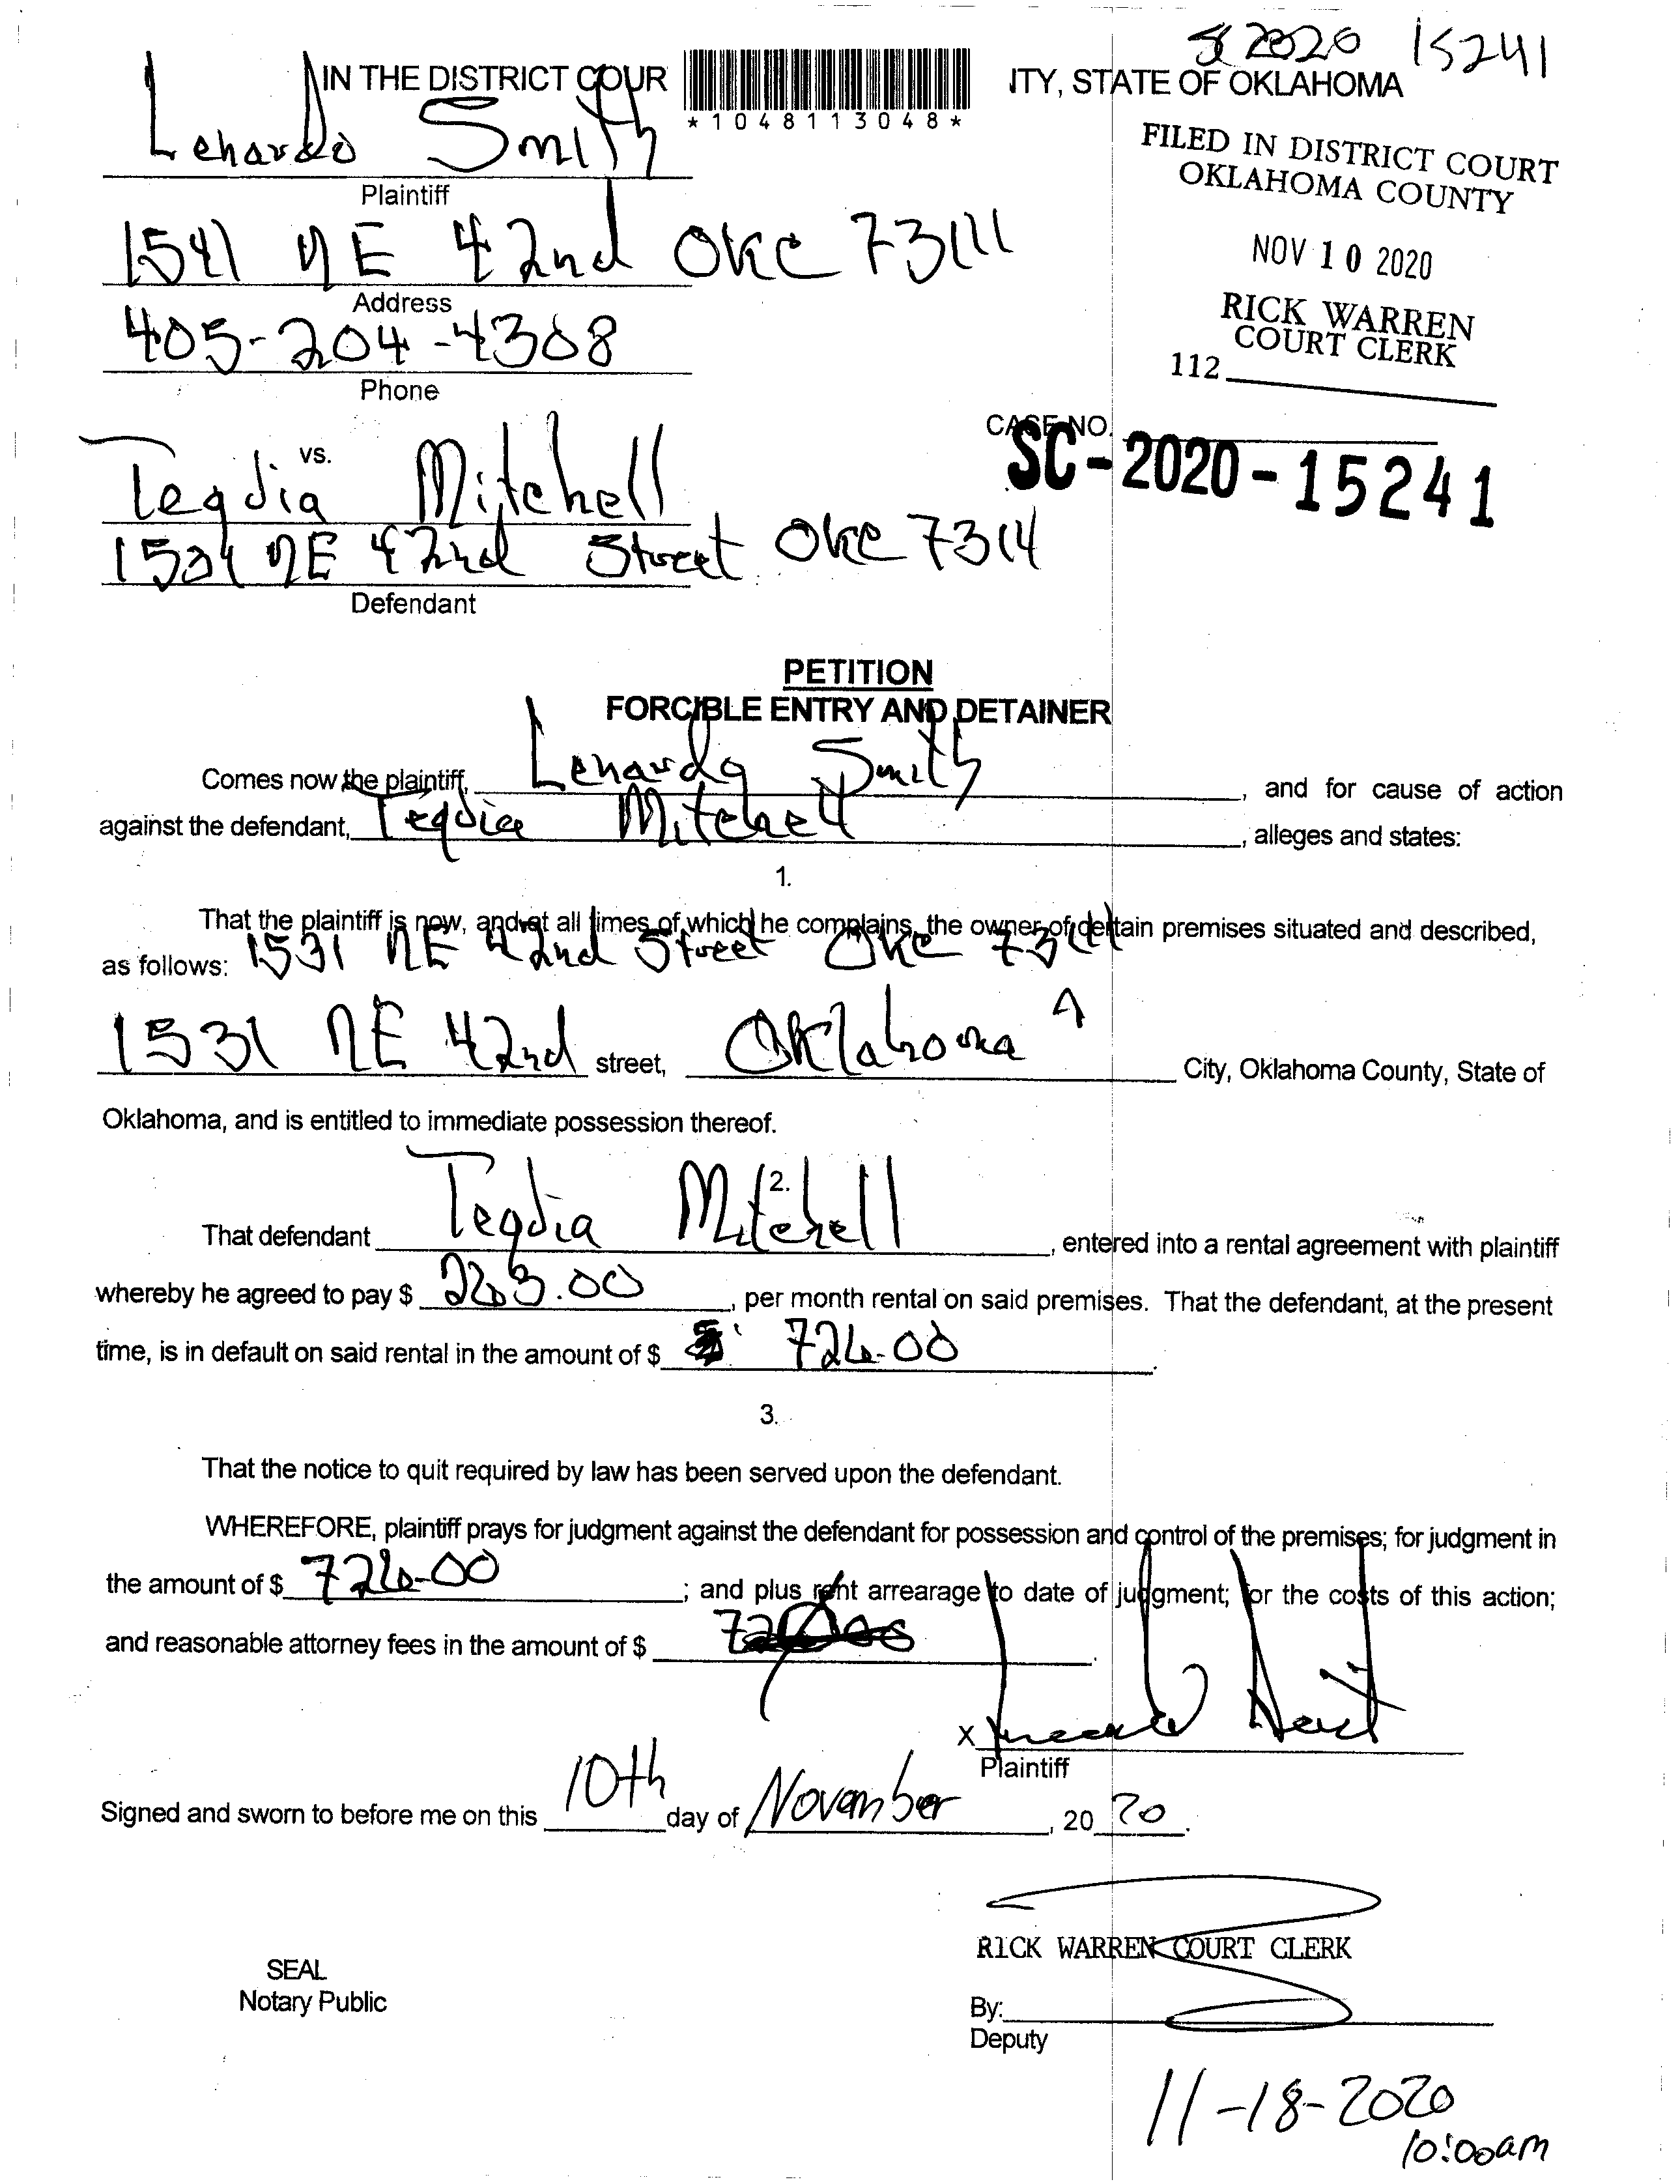 SC 2020 15241
IN THE DISTRICT COUR ITY, STATE OF OKLAHOMA
*1048113048*
Lenardo Smith
Plaintiff
FILED IN DISTRICT COURT
OKLAHOMA COUNTY
NOV 10 2020
RICK WARREN
COURT CLERK
112
1541 NE 42nd OKC 73111
Address
405-204-4308
Phone
vs.
CASE NO.
SC-2020-15241
Teqdia Mitchell
1531 NE 42nd Street OKC 7311
Defendant
PETITION
FORCIBLE ENTRY AND DETAINER
Comes now the plaintiff, Lenardo Smith, and for cause of action
against the defendant, Teqdia Mitchell, alleges and states:
1.
That the plaintiff is now, and at all times of which he complains, the owner of certain premises situated and described,
as follows: 1531 NE 42nd Street OKC 73111
1531 NE 42nd street, Oklahoma City, Oklahoma County, State of
Oklahoma, and is entitled to immediate possession thereof.
2.
That defendant Teqdia Mitchell, entered into a rental agreement with plaintiff
whereby he agreed to pay $ , per month rental on said premises. That the defendant, at the present
time, is in default on said rental in the amount of $ 726.00.
3.
That the notice to quit required by law has been served upon the defendant.
WHEREFORE, plaintiff prays for judgment against the defendant for possession and control of the premises; for judgment in
the amount of $ 726.00; and plus rent arrearage to date of judgment; for the costs of this action;
and reasonable attorney fees in the amount of $ .
X
Plaintiff
Signed and sworn to before me on this 10th day of November, 20 20.
RICK WARREN COURT CLERK
SEAL
Notary Public
By:
Deputy
11-18-2020
10:00am